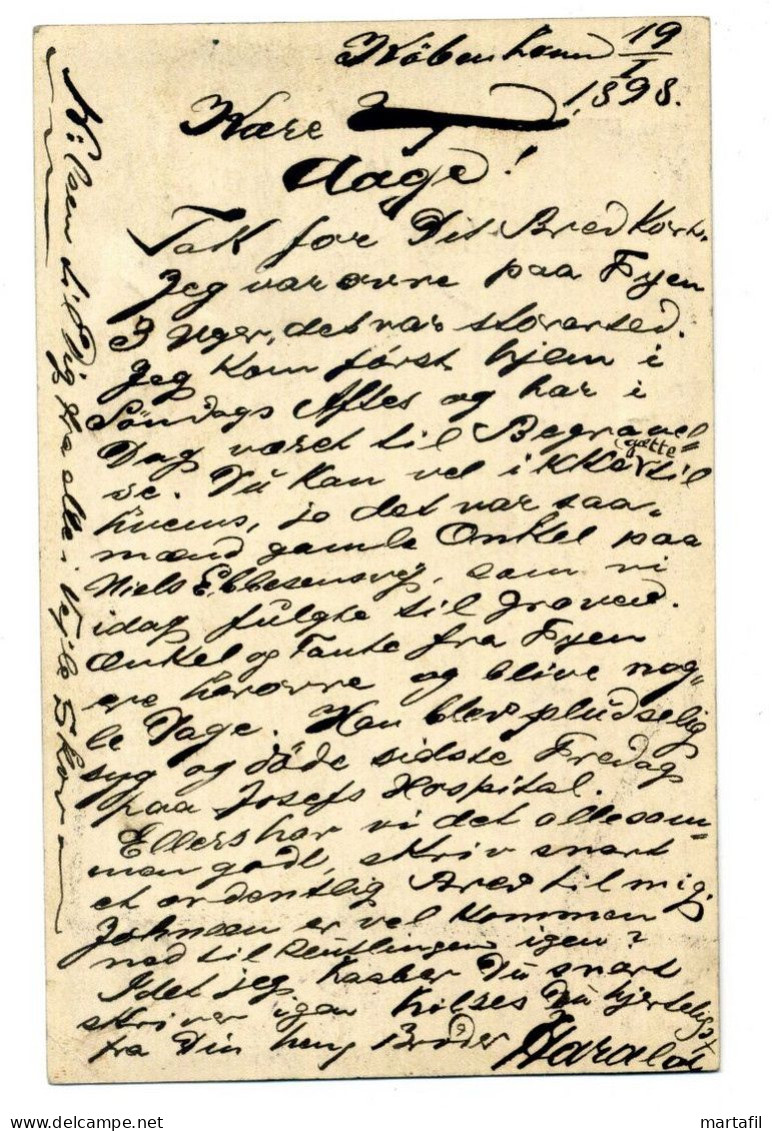 Köbenhavn 19/1
1898.
Kære
Aage!
Tak for Dit Brevkort.
Jeg var ovre paa Fyen
3 Uger, det var storartet.
Jeg kom först hjem i
Söndags Aftes og har i
Dag været til Begravel=
se. Du kan vel ikke gætte til
hvems, jo det var saa-
mænd gamle Onkel paa
Niels Ebbesensvej, som vi
idag fulgte til Graven.
Onkel og Tante fra Fyen
ere herovre og blive nog-
le Dage. Han blev pludselig
syg og döde sidste Fredag
paa Josefs Hospital.
Ellers har vi det allesam=
men godt, skriv snart
et ordentlig Brev til mig.
Johnsen er vel kommen
ned til Reutlingen igen?
Idet jeg haaber Du snart
skriver igen hilses Du hjerteligst
fra Din Broder Harald
Hilsen til Dig fra alle i Vejle